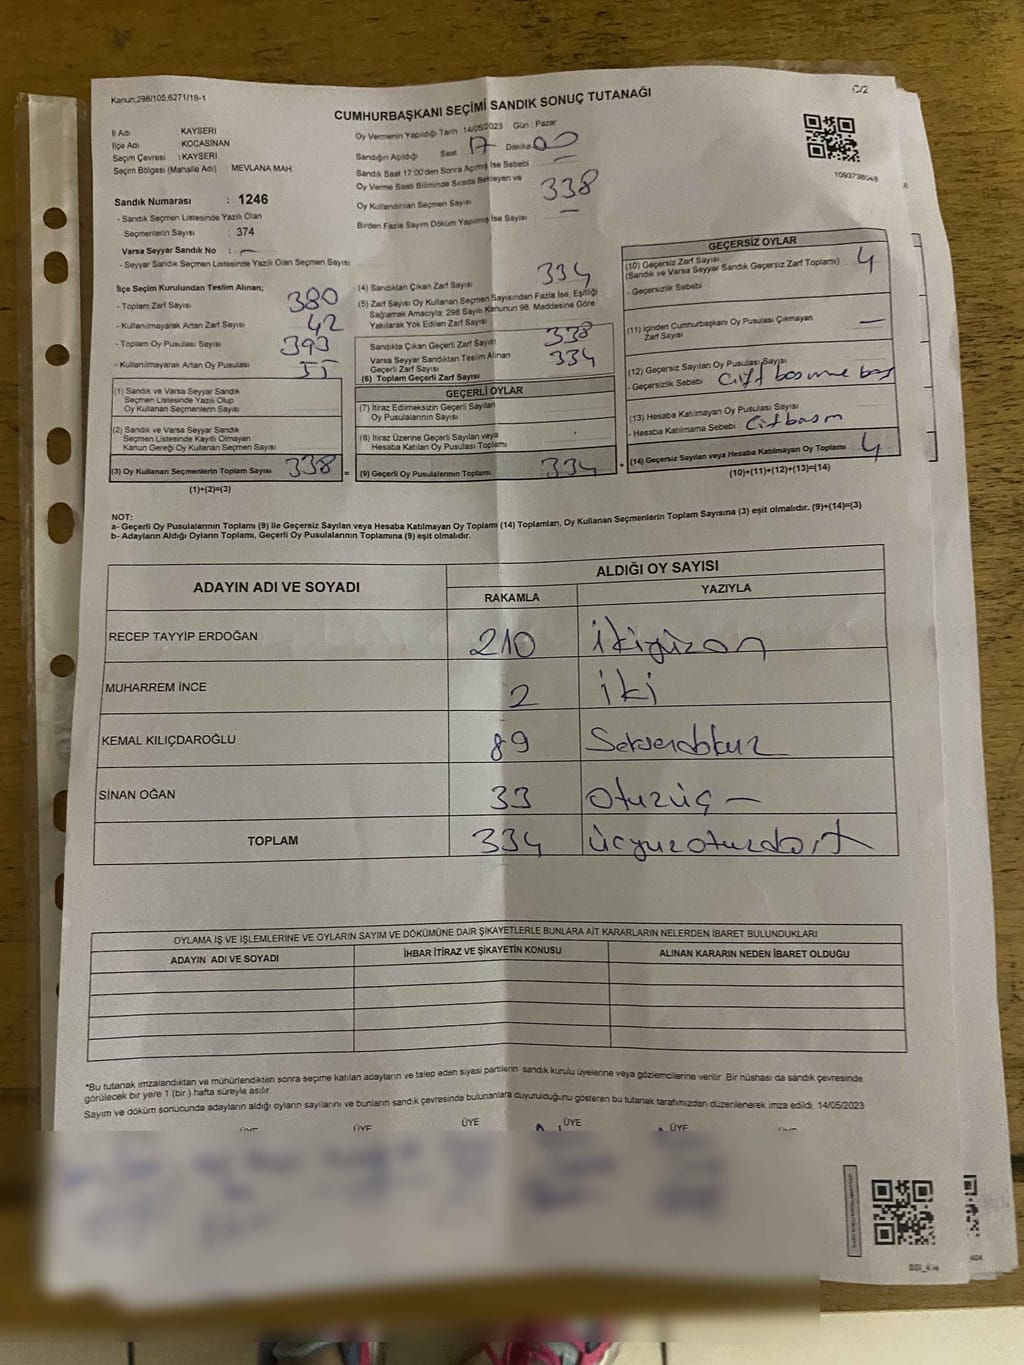 Kanun,298/105,6271/18-1
C/2
CUMHURBAŞKANI SEÇİMİ SANDIK SONUÇ TUTANAĞI
İl Adı KAYSERİ
İlçe Adı KOCASİNAN
Seçim Çevresi : KAYSERİ
Seçim Bölgesi (Mahalle Adı) : MEVLANA MAH.
Sandık Numarası : 1246
- Sandık Seçmen Listesinde Yazılı Olan
Seçmenlerin Sayısı : 374
Varsa Seyyar Sandık No : —
- Seyyar Sandık Seçmen Listesinde Yazılı Olan Seçmen Sayısı
Oy Vermenin Yapıldığı Tarih : 14/05/2023 Gün : Pazar
Sandığın Açıldığı Saat 17 Dakika 00
Sandık Saat 17:00'den Sonra Açılmış İse Sebebi —
Oy Verme Saati Bitiminde Sırada Bekleyen ve
Oy Kullandırılan Seçmen Sayısı 338
Birden Fazla Sayım Döküm Yapılmış İse Sayısı —
İlçe Seçim Kurulundan Teslim Alınan;
- Toplam Zarf Sayısı 380
- Kullanılmayarak Artan Zarf Sayısı 42
- Toplam Oy Pusulası Sayısı 393
- Kullanılmayarak Artan Oy Pusulası 55
(1) Sandık ve Varsa Seyyar Sandık
Seçmen Listesinde Yazılı Olup
Oy Kullanan Seçmenlerin Sayısı
(2) Sandık ve Varsa Seyyar Sandık
Seçmen Listesinde Kayıtlı Olmayan
Kanun Gereği Oy Kullanan Seçmen Sayısı
(3) Oy Kullanan Seçmenlerin Toplam Sayısı 338 =
(1)+(2)=(3)
(4) Sandıktan Çıkan Zarf Sayısı 334
(5) Zarf Sayısı Oy Kullanan Seçmen Sayısından Fazla İse, Eşitliği
Sağlamak Amacıyla; 298 Sayılı Kanunun 98. Maddesine Göre
Yakılarak Yok Edilen Zarf Sayısı
Sandıkta Çıkan Geçerli Zarf Sayısı 338
Varsa Seyyar Sandıktan Teslim Alınan
Geçerli Zarf Sayısı 334
(6) Toplam Geçerli Zarf Sayısı
GEÇERLİ OYLAR
(7) İtiraz Edilmeksizin Geçerli Sayılan
Oy Pusulalarının Sayısı
(8) İtiraz Üzerine Geçerli Sayılan veya
Hesaba Katılan Oy Pusulası Toplamı
(9) Geçerli Oy Pusulalarının Toplamı 334 +
GEÇERSİZ OYLAR
(10) Geçersiz Zarf Sayısı
(Sandık ve Varsa Seyyar Sandık Geçersiz Zarf Toplamı) 4
- Geçersizlik Sebebi
(11) İçinden Cumhurbaşkanı Oy Pusulası Çıkmayan
Zarf Sayısı —
(12) Geçersiz Sayılan Oy Pusulası Sayısı
- Geçersizlik Sebebi Çift basme
(13) Hesaba Katılmayan Oy Pusulası Sayısı
- Hesaba Katılmama Sebebi Çift basm
(14) Geçersiz Sayılan veya Hesaba Katılmayan Oy Toplamı 4
(10)+(11)+(12)+(13)=(14)
NOT:
a- Geçerli Oy Pusulalarının Toplamı (9) ile Geçersiz Sayılan veya Hesaba Katılmayan Oy Toplamı (14) Toplamları, Oy Kullanan Seçmenlerin Toplam Sayısına (3) eşit olmalıdır. (9)+(14)=(3)
b- Adayların Aldığı Oyların Toplamı, Geçerli Oy Pusulalarının Toplamına (9) eşit olmalıdır.
ADAYIN ADI VE SOYADI
ALDIĞI OY SAYISI
RAKAMLA YAZIYLA
RECEP TAYYİP ERDOĞAN 210 ikiyüzon
MUHARREM İNCE 2 iki
KEMAL KILIÇDAROĞLU 89 Seksendokuz
SİNAN OĞAN 33 otuzüç —
TOPLAM 334 üçyüzotuzdört
OYLAMA İŞ VE İŞLEMLERİNE VE OYLARIN SAYIM VE DÖKÜMÜNE DAİR ŞİKAYETLERLE BUNLARA AİT KARARLARIN NELERDEN İBARET BULUNDUKLARI
ADAYIN ADI VE SOYADI İHBAR İTİRAZ VE ŞİKAYETİN KONUSU ALINAN KARARIN NEDEN İBARET OLDUĞU
*Bu tutanak imzalandıktan ve mühürlendikten sonra seçime katılan adayların ve talep eden siyasi partilerin sandık kurulu üyelerine veya gözlemcilerine verilir. Bir nüshası da sandık çevresinde
görülecek bir yere 1 (bir) hafta süreyle asılır.
Sayım ve döküm sonucunda adayların aldığı oyların sayılarını ve bunların sandık çevresinde bulunanlara duyurulduğunu gösteren bu tutanak tarafımızdan düzenlenerek imza edildi. 14/05/2023
ÜYE ÜYE ÜYE ÜYE ÜYE